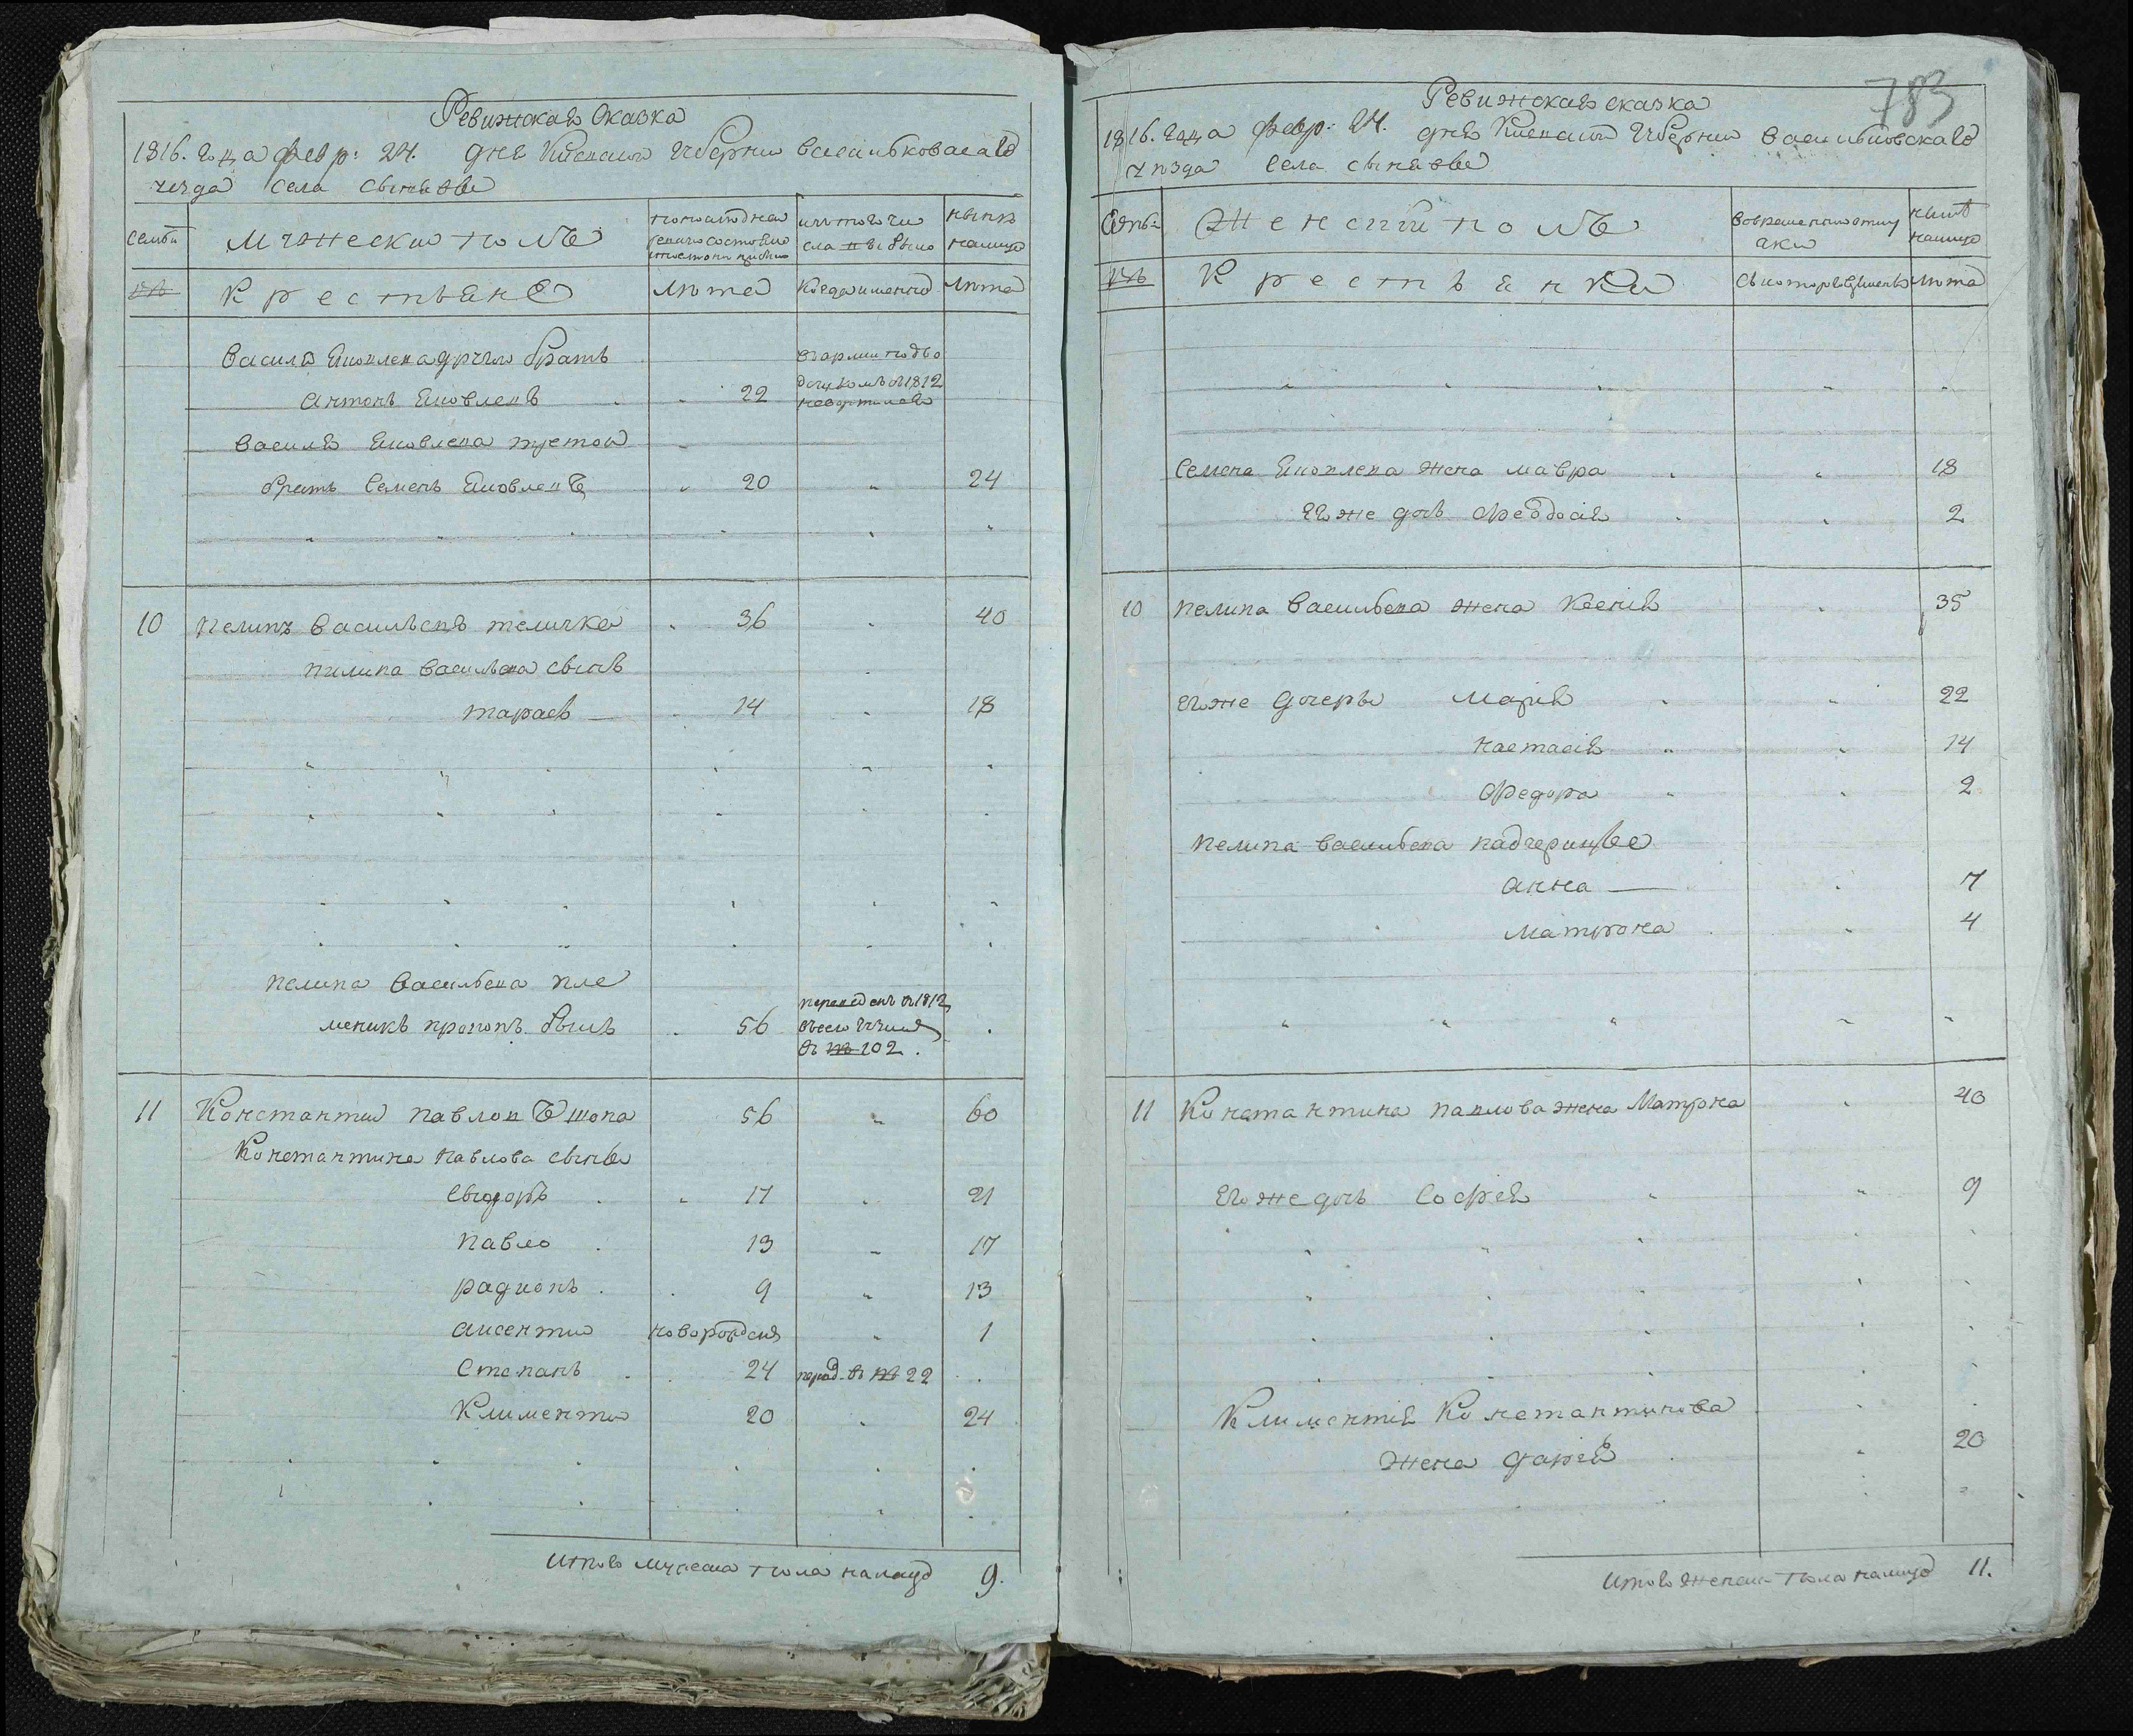 Ревижская сказка
1816. года февр: 24. дня Киевской губернии Васильковскаго
уезда села Сынявы
семьи
мужеский полъ
по последней
ревизии состояло
и после того прибыло
изъ того чи
сла выбыло
ныне
на лицо
№
Крестьяне
лета
когда именно
лета
Василя Яковлева другий братъ
Антонъ Яковлевъ 22
въ армии под во
дчикомъ въ 1812
Василя Яковлева третой
братъ Семенъ Яковлевъ 20 24
10 Пелипъ Васильевъ теличка 36 40
Пилипа Васильева сынъ
Тарасъ 14 18
Пелипа Васильева пле
меникъ Прокопъ 56
переведенъ въ 1812
въ № 102.
11 Константий Павловъ шопа 56 60
Константина Павлова сыны
Сыдоръ 17 21
Павло 13 17
Радионъ 9 13
Аксентий новорожденъ 1
Степанъ 24 перевед. въ № 22
Климентий 20 24
Итого мужеска пола налицо 9.
783
Ревижская сказка
1816. года февр: 24. дня Киевской губернии Васильковскаго
уезда села Сынявы
Семьи
Женский полъ
Во временной отлу
чке
ныне
налицо
№
Крестьянки
съ котораго времени
лета
Семена Яковлева жена Мавра 18
Его же дочь Феодосия 2
10 Пелипа Васильева жена Ксения 35
Его же дочеры Мария 22
Настасия 14
Федора 2
Пелипа Васильева падчерицы
Анна 7
Матрона 4
11 Константина Павлова жена Матрона 40
Его же дочь София 9
Климентия Константинова
жена Дария 20
Итого женска пола налицо 11.